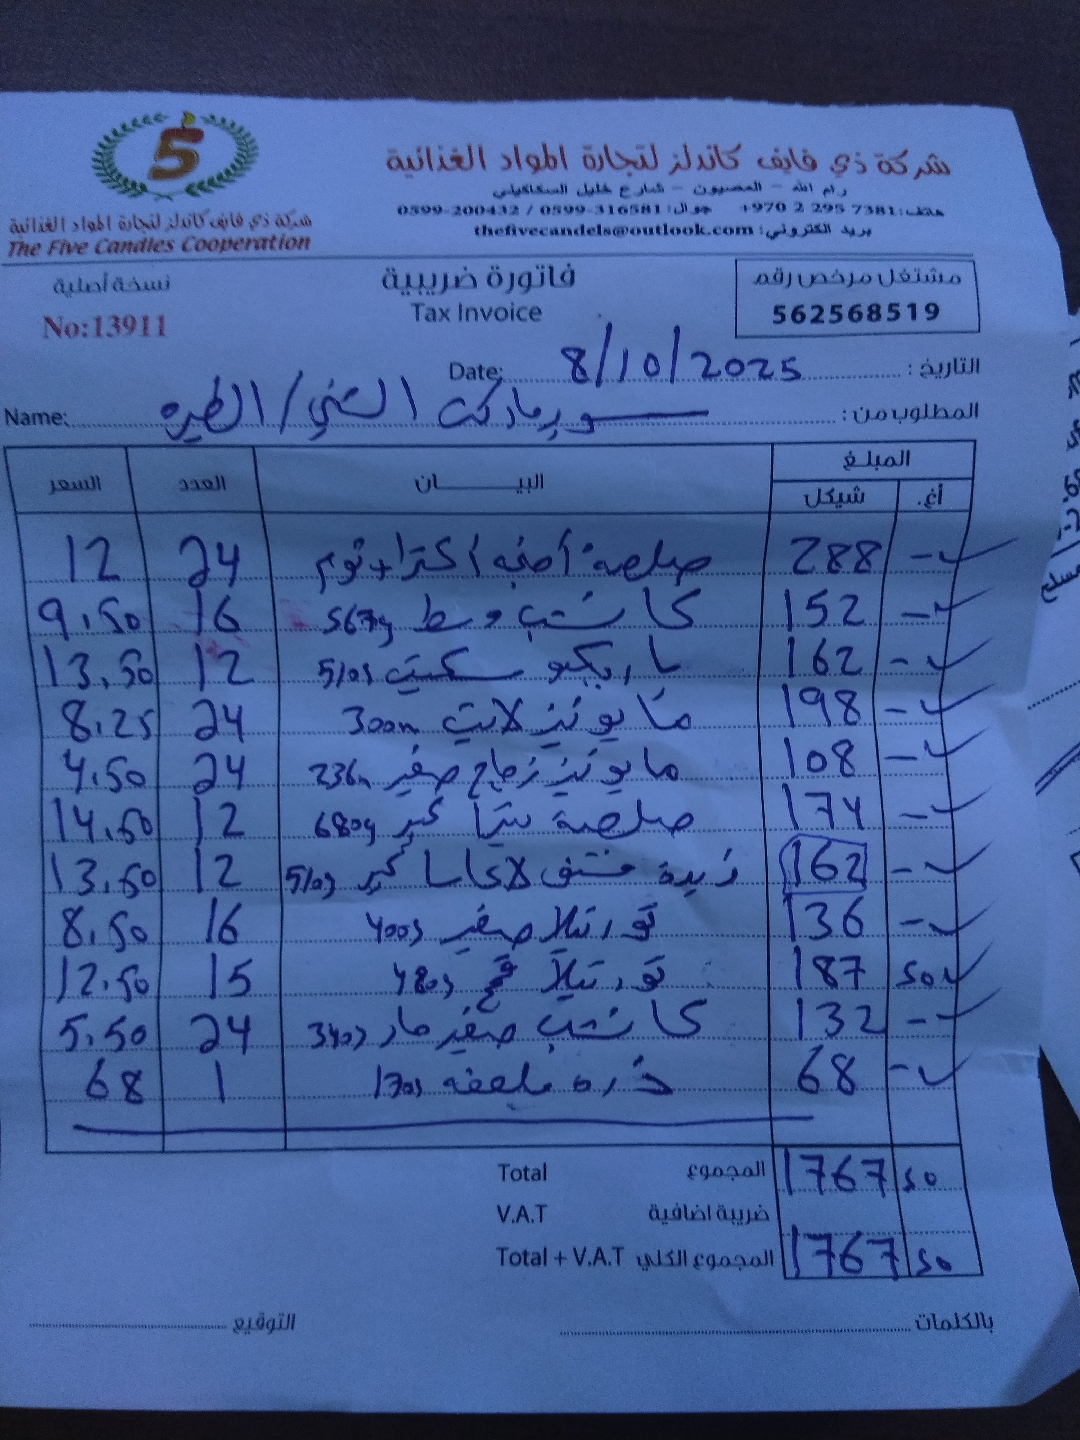 شركة ذي فايف كاندلز لتجارة المواد الغذائية
رام الله - المصيون - شارع خليل السكاكيني
هاتف: +970 2 295 7381 جوال: 0599-316581 / 0599-200432
بريد الكتروني: thefivecandels@outlook.com
5
شركة ذي فايف كاندلز لتجارة المواد الغذائية
The Five Candles Cooperation
مشتغل مرخص رقم
562568519
فاتورة ضريبية
Tax Invoice
نسخة أصلية
No:13911
التاريخ: 8/10/2025 Date:
المطلوب من: سوبرماركت / الطيره Name:
المبلغ
أغ. شيكل البيـــــان العدد السعر
- 288 صلصة اكترا توم 24 12
- 152 كاتشب وسط 567g 16 9.50
- 162 باربكيو سكويت 510g 12 13.50
- 198 مايونيز لايت 300m 24 8.25
- 108 مايونيز زجاج صغير 236m 24 4.50
- 174 صلصة كبير 680g 12 14.50
- 162 زبدة فستق كبير 510g 12 13.50
- 136 تورتيلا صغير 400g 16 8.50
50 187 تورتيلا قمح 480g 15 12.50
- 132 كاتشب صغير حار 340g 24 5.50
- 68 ذره 170g 1 68
Total المجموع 1767 50
V.A.T ضريبة اضافية
Total + V.A.T المجموع الكلي 1767 50
بالكلمات التوقيع